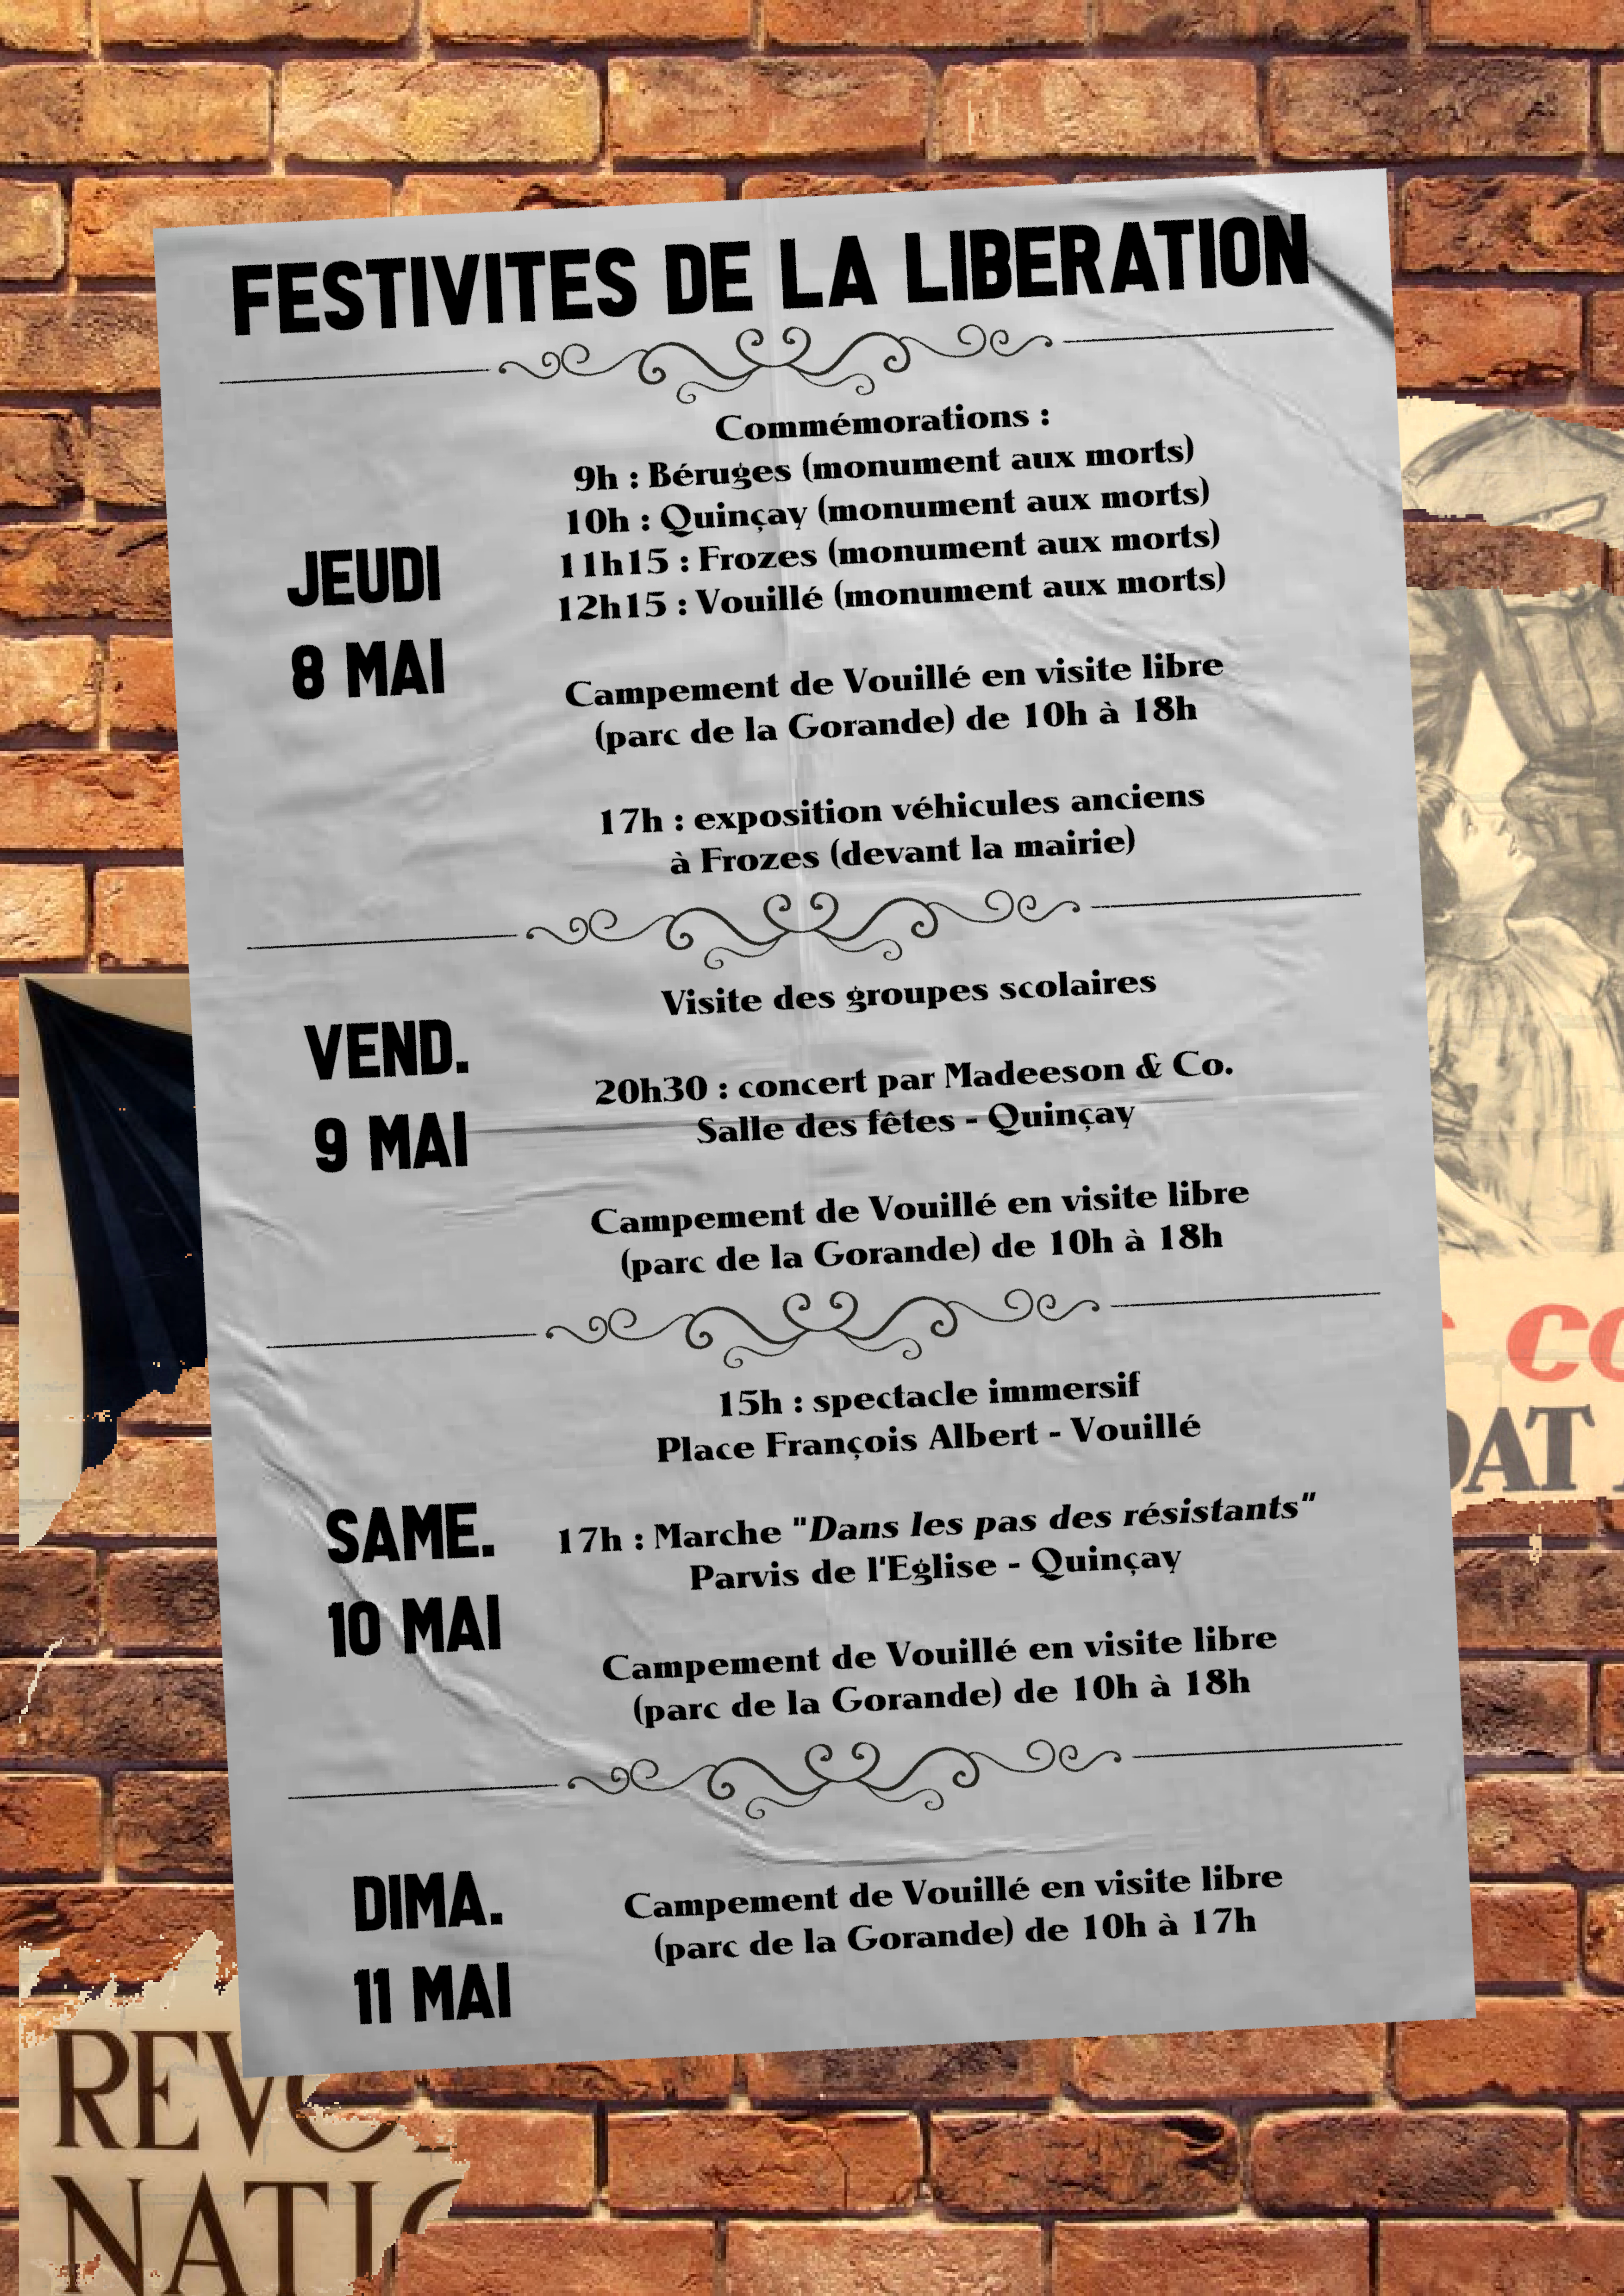 FESTIVITES DE LA LIBERATION
JEUDI
8 MAI
Commémorations :
9h : Béruges (monument aux morts)
10h : Quinçay (monument aux morts)
11h15 : Frozes (monument aux morts)
12h15 : Vouillé (monument aux morts)
Campement de Vouillé en visite libre
(parc de la Gorande) de 10h à 18h
17h : exposition véhicules anciens
à Frozes (devant la mairie)
VEND.
9 MAI
Visite des groupes scolaires
20h30 : concert par Madeeson & Co.
Salle des fêtes - Quinçay
Campement de Vouillé en visite libre
(parc de la Gorande) de 10h à 18h
SAME.
10 MAI
15h : spectacle immersif
Place François Albert - Vouillé
17h : Marche "Dans les pas des résistants"
Parvis de l'Eglise - Quinçay
Campement de Vouillé en visite libre
(parc de la Gorande) de 10h à 18h
DIMA.
11 MAI
Campement de Vouillé en visite libre
(parc de la Gorande) de 10h à 17h